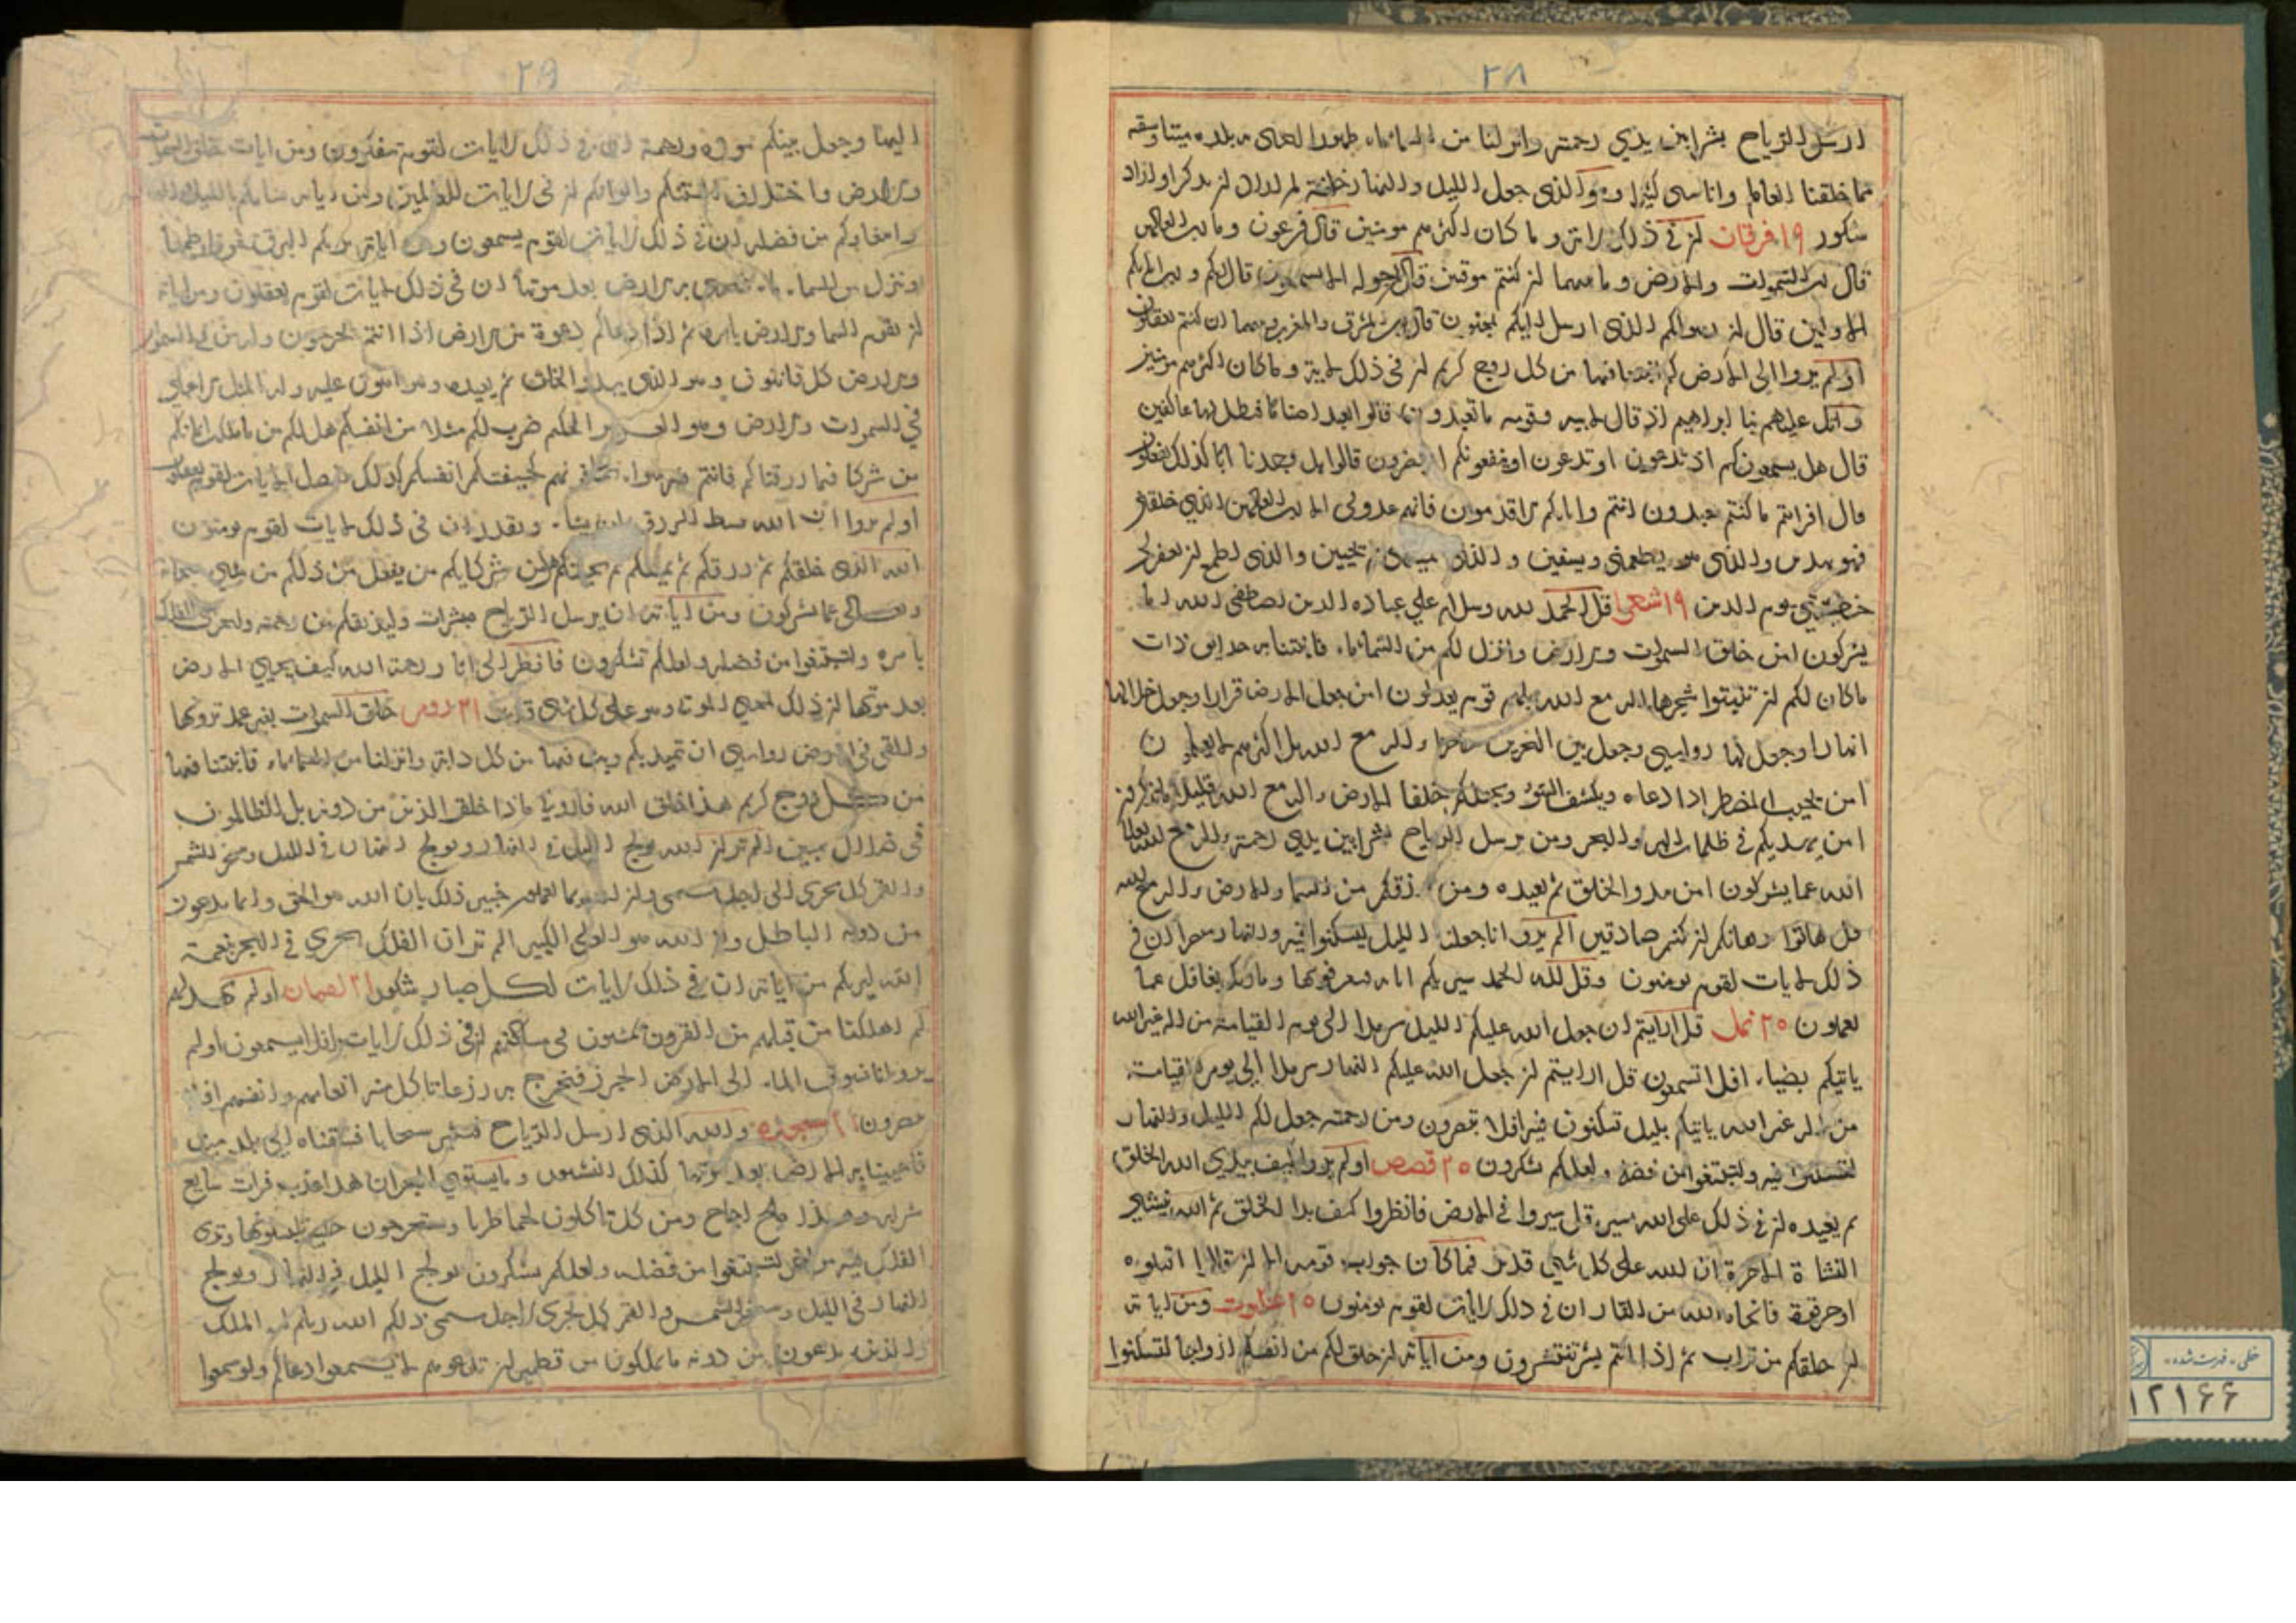 ٢٨
ارسل الرياح بشرا بين يدي رحمته وانزلنا من السماء ماء طهورا لنحيي به بلدة ميتا ونسقيه
مما خلقنا انعاما واناسي كثيرا وهو الذي جعل الليل والنهار خلفة لمن اراد ان يذكر او اراد
شكورا ١٩ فرقان ان في ذلك لاية وما كان اكثرهم مومنين قال فرعون وما رب العالمين
قال رب السموات والارض وما بينهما ان كنتم موقنين قال لمن حوله الا تستمعون قال ربكم ورب ابائكم
الاولين قال ان رسولكم الذي ارسل اليكم لمجنون قال رب المشرق والمغرب وما بينهما ان كنتم تعقلون
اولم يروا الى الارض كم انبتنا فيها من كل زوج كريم ان في ذلك لاية وما كان اكثرهم مومنين
واتل عليهم نبا ابراهيم اذ قال لابيه وقومه ما تعبدون قالوا نعبد اصناما فنظل لها عاكفين
قال هل يسمعونكم اذ تدعون او تدعون او ينفعونكم او يضرون قالوا بل وجدنا ابائنا كذلك يفعلون
قال افرايتم ما كنتم تعبدون انتم واباؤكم الاقدمون فانهم عدو لي الا رب العالمين الذي خلقني
فهو يهدين والذي هو يطعمني ويسقين والذي يميتني ثم يحيين والذي اطمع ان يغفر لي
خطيئتي يوم الدين ١٩ شعرا قل الحمد لله وسلام علي عباده الذين اصطفى الله اما
يشركون امن خلق السموات والارض وانزل لكم من السماء ماء فانبتنا به حدايق ذات
ما كان لكم ان تنبتوا شجرها اله مع الله بل هم قوم يعدلون امن جعل الارض قرارا وجعل خلالها
انهارا وجعل لها رواسي وجعل بين البحرين حاجزا اله مع الله بل اكثرهم لا يعلمون
امن يجيب المضطر اذا دعاه ويكشف السوء ويجعلكم خلفا الارض اله مع الله قليلا ما تذكرون
امن يهديكم في ظلمات البر والبحر ومن يرسل الرياح بشرا بين يدي رحمته اله مع الله تعالى
الله عما يشركون امن يبدو الخلق ثم يعيده ومن يرزقكم من السما والارض اله مع الله
قل هاتوا برهانكم ان كنتم صادقين الم يروا انا جعلنا الليل ليسكنوا فيه والنهار مبصرا ان في
ذلك لايات لقوم يومنون وقل لله الحمد سيريكم اياته فتعرفونها وما ربك بغافل عما
تعملون ٢٥ نمل قل ارايتم ان جعل الله عليكم الليل سرمدا الى يوم القيامة من اله غير الله
ياتيكم بضياء افلا تسمعون قل ارايتم ان جعل الله عليكم النهار سرمدا الى يوم القيامة
من اله غير الله ياتيكم بليل تسكنون فيه افلا تبصرون ومن رحمته جعل لكم الليل والنهار
لتسكنوا فيه ولتبتغوا من فضله ولعلكم تشكرون ٢٥ قصص اولم يروا كيف يبدي الله الخلق
ثم يعيده ان في ذلك على الله يسير قل سيروا في الارض فانظروا كيف بدا الخلق ثم الله ينشي
النشاة الاخرة ان الله على كل شي قدير فما كان جواب قومه الا ان قالوا اقتلوه
او حرقوه فانجاه الله من النار ان في ذلك لايات لقوم يومنون ٢٥ عنكبوت ومن اياته
ان خلقكم من تراب ثم اذا انتم بشر تنتشرون ومن اياته ان خلق لكم من انفسكم ازواجا لتسكنوا
٢٩
اليها وجعل بينكم مودة ورحمة ان في ذلك لايات لقوم يتفكرون ومن اياته خلق السموات
والارض واختلاف السنتكم والوانكم ان في لايات للعالمين ومن اياته منامكم بالليل والنهار
وابتغاؤكم من فضله ان في ذلك لايات لقوم يسمعون ومن اياته يريكم البرق خوفا وطمعا
وينزل من السماء ماء فيحيي به الارض بعد موتها ان في ذلك لايات لقوم يعقلون ومن اياته
ان تقوم السما والارض بامره ثم اذا دعاكم دعوة من الارض اذا انتم تخرجون وله من في السموات
والارض كل قانتون وهو الذي يبدو الخلق ثم يعيده وهو اهون عليه وله المثل الاعلى
في السموات والارض وهو العزيز الحكيم ضرب لكم مثلا من انفسكم هل لكم من ما ملكت ايمانكم
من شركا فيما رزقناكم فانتم فيه سواء تخافونهم كخيفتكم انفسكم كذلك نفصل الايات لقوم يعقلون
اولم يروا ان الله يبسط الرزق لمن يشاء ويقدر ان في ذلك لايات لقوم يومنون
الله الذي خلقكم ثم رزقكم ثم يميتكم ثم يحييكم هل من شركايكم من يفعل من ذلكم من شي سبحانه
وتعالى عما يشركون ومن اياته ان يرسل الرياح مبشرات وليذيقكم من رحمته ولتجري الفلك
بامره ولتبتغوا من فضله ولعلكم تشكرون فانظر الى اثار رحمة الله كيف يحيي الارض
بعد موتها ان ذلك لمحيي الموتى وهو على كل شي قدير ٢١ روم خلق السموات بغير عمد ترونها
والقى في الارض رواسي ان تميد بكم وبث فيها من كل دابة وانزلنا من السماء ماء فانبتنا فيها
من كل زوج كريم هذا خلق الله فاروني ماذا خلق الذين من دونه بل الظالمون
في ضلال مبين الم تر ان الله يولج الليل في النهار ويولج النهار في الليل وسخر الشمس
والقمر كل يجري الى اجل مسمى وان الله بما تعملون خبير ذلك بان الله هو الحق وان ما يدعون
من دونه الباطل وان الله هو العلي الكبير الم تر ان الفلك تجري في البحر بنعمة
الله ليريكم من اياته ان في ذلك لايات لكل صبار شكور ٢١ لقمان اولم يهد لهم
كم اهلكنا من قبلهم من القرون يمشون في مساكنهم ان في ذلك لايات افلا يسمعون اولم
يروا انا نسوق الماء الى الارض الجرز فنخرج به زرعا تاكل منه انعامهم وانفسهم افلا
يبصرون ٢١ سجده والله الذي ارسل الرياح فتثير سحابا فسقناه الى بلد ميت
فاحيينا به الارض بعد موتها كذلك النشور وما يستوي البحران هذا عذب فرات سايغ
شرابه وهذا ملح اجاج ومن كل تاكلون لحما طريا وتستخرجون حلية تلبسونها وترى
الفلك فيه مواخر لتبتغوا من فضله ولعلكم تشكرون يولج الليل في النهار ويولج
النهار في الليل وسخر الشمس والقمر كل يجري لاجل مسمى ذلكم الله ربكم له الملك
والذين تدعون من دونه ما يملكون من قطمير ان تدعوهم لا يسمعوا دعاكم ولو سمعوا
خطی - فهرست شده
١٢١۶۶